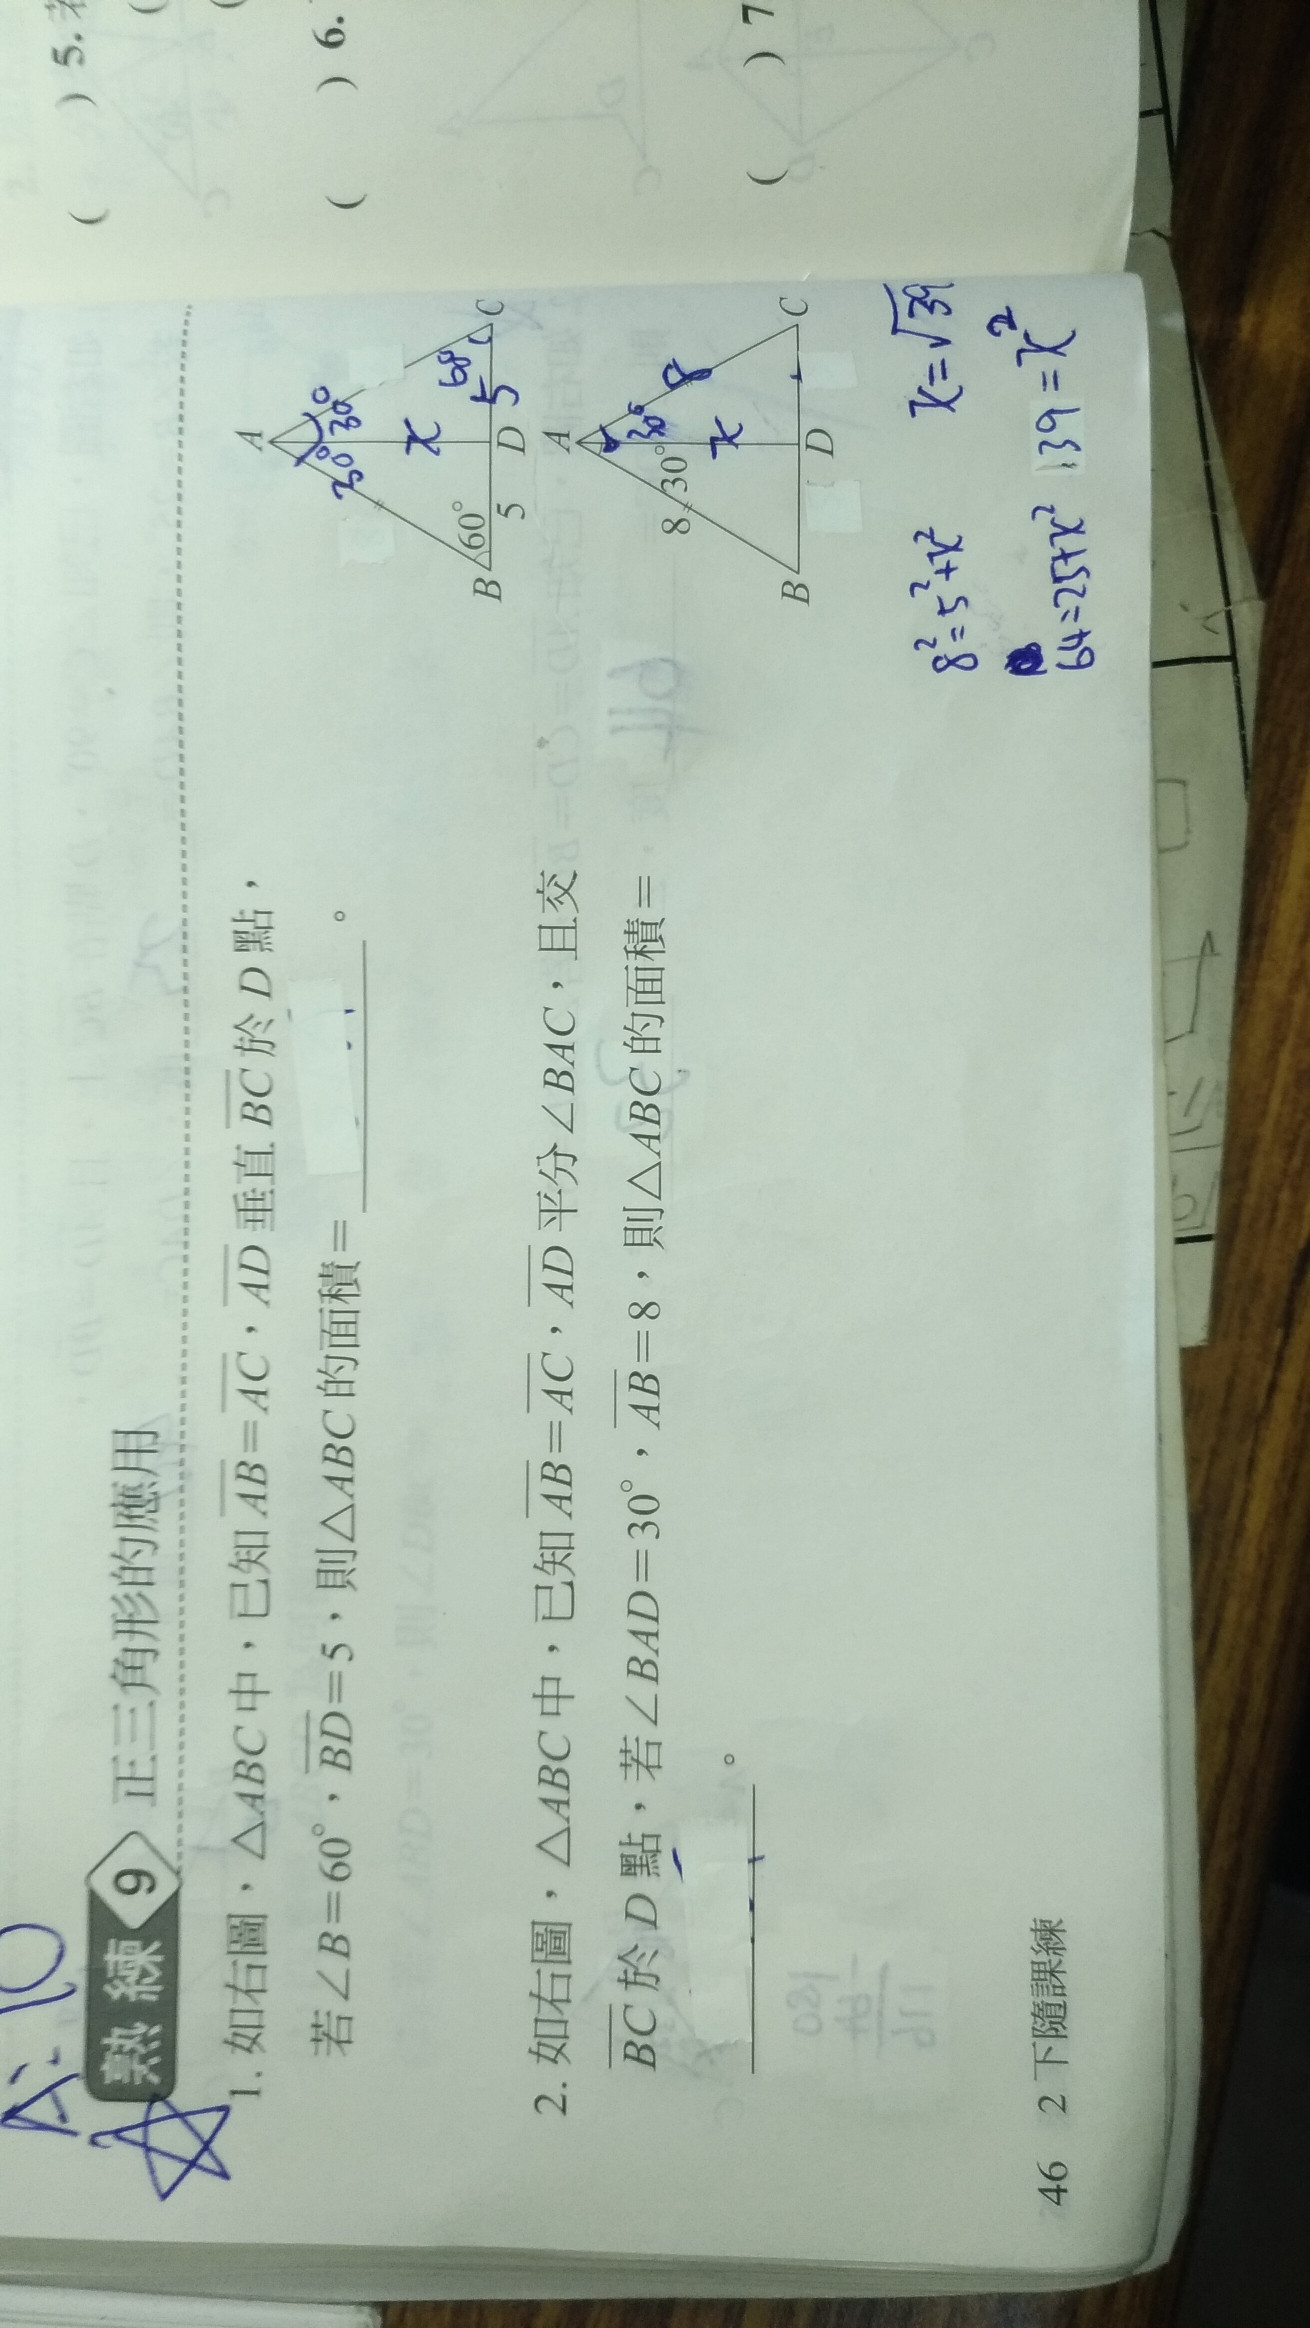 A:10
熟練 9 正三角形的應用
1. 如右圖，△ABC中，已知AB=AC，AD垂直BC於D點，
若∠B=60°，BD=5，則△ABC的面積=______。
A
30° 30°
x
B 60° 60 C
5 D 5
2. 如右圖，△ABC中，已知AB=AC，AD平分∠BAC，且交
BC於D點，若∠BAD=30°，AB=8，則△ABC的面積=
______。
A
8 30° 30° 8
x
B D C
8²=5²+x² x=√39
64=25+x² 39=x²
46 2下隨課練
( ) 5. 若
( ) 6.
( ) 7